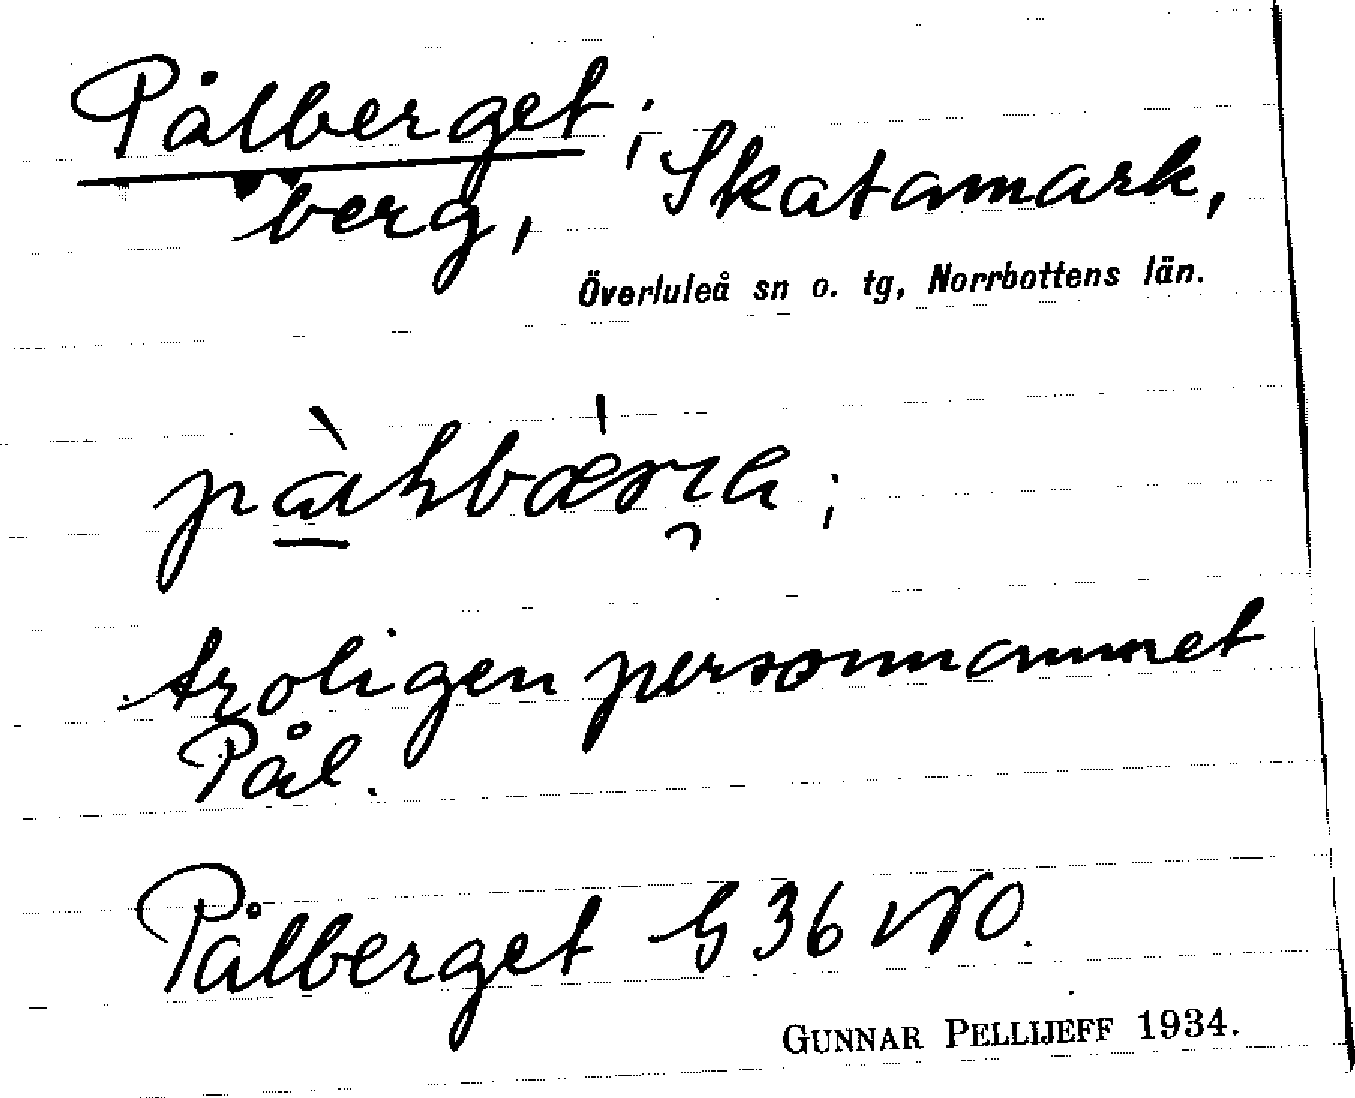 Pålberget;
berg, Skatamark,
Överluleå sn o. tg, Norrbottens län.
troligen personnamnet
Pål.
Pålberget G 36 NO.
GUNNAR PELLIJEFF 1934.